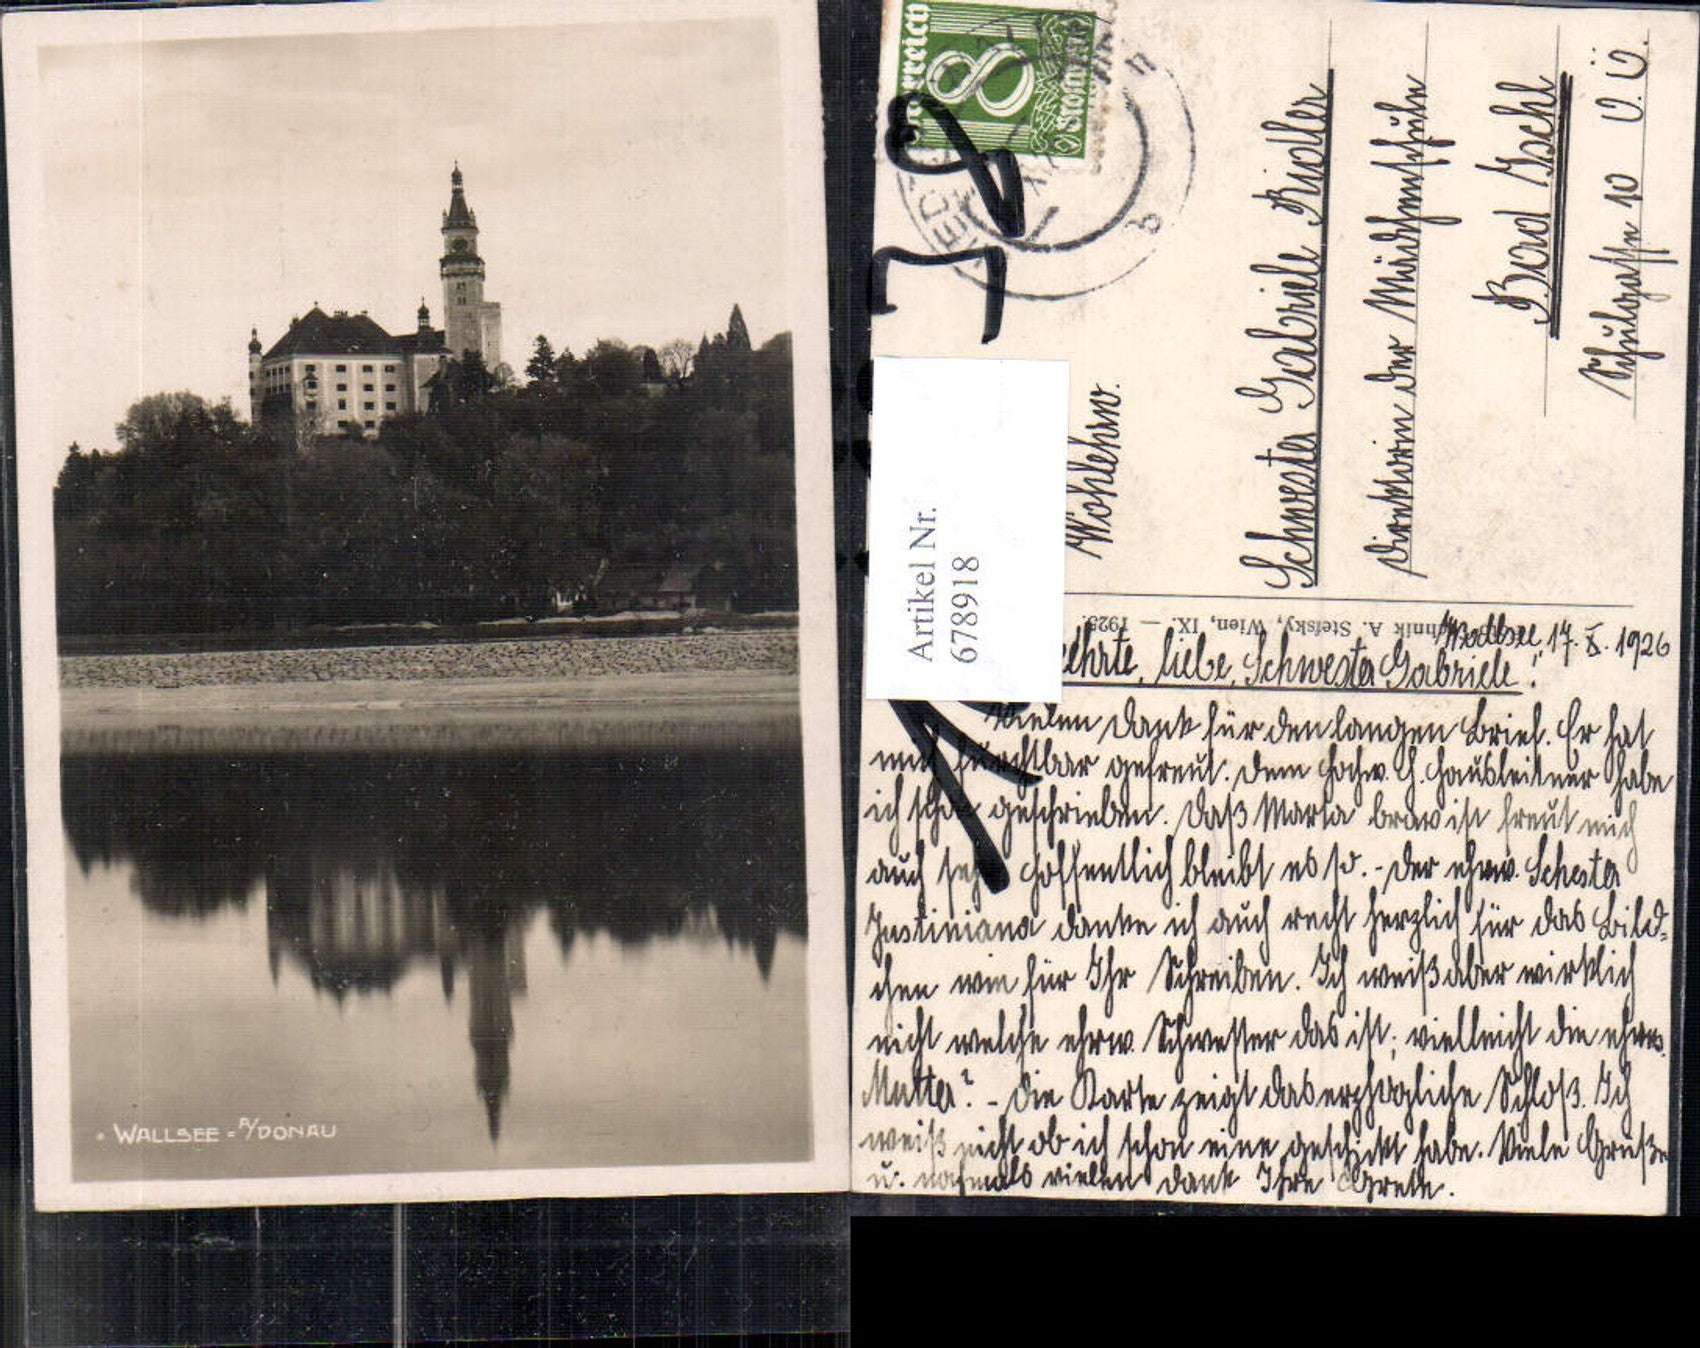 WALLSEE = A/DONAU
8
Groschen
Artikel Nr.
678918
Wohlehrw.
Schwester Gabriele Bidler
Direktorin der Mädchenschule
Bad Ischl
Schulgasse 10 O. Ö.
A. Stefsky, Wien, IX. — 1925.
Wallsee, 17. X. 1926
liebe Schwester Gabriele!
Vielen Dank für den langen Brief. Er hat
mich furchtbar gefreut. Dem hochw. H. Hausleitner habe
ich schon geschrieben. Daß Marta brav ist freut mich
auch sehr hoffentlich bleibt es so. - Der ehrw. Schester
Justiniana danke ich auch recht herzlich für das Bild-
chen wie für Ihr Schreiben. Ich weiß aber wirklich
nicht welche ehrw. Schwester das ist; vielleicht die ehrw.
Mutter? - Die Karte zeigt das erzherzogliche Schloß. Ich
weiß nicht ob ich schon eine geschickt habe. Viele Grüße
u. nochmals vielen Dank Ihre Grete.